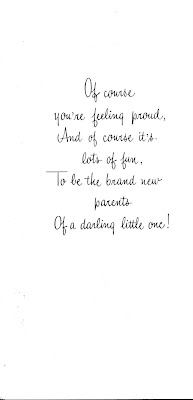 Of course
you're feeling proud,
And of course it's
lots of fun,
To be the brand new
parents
Of a darling little one!